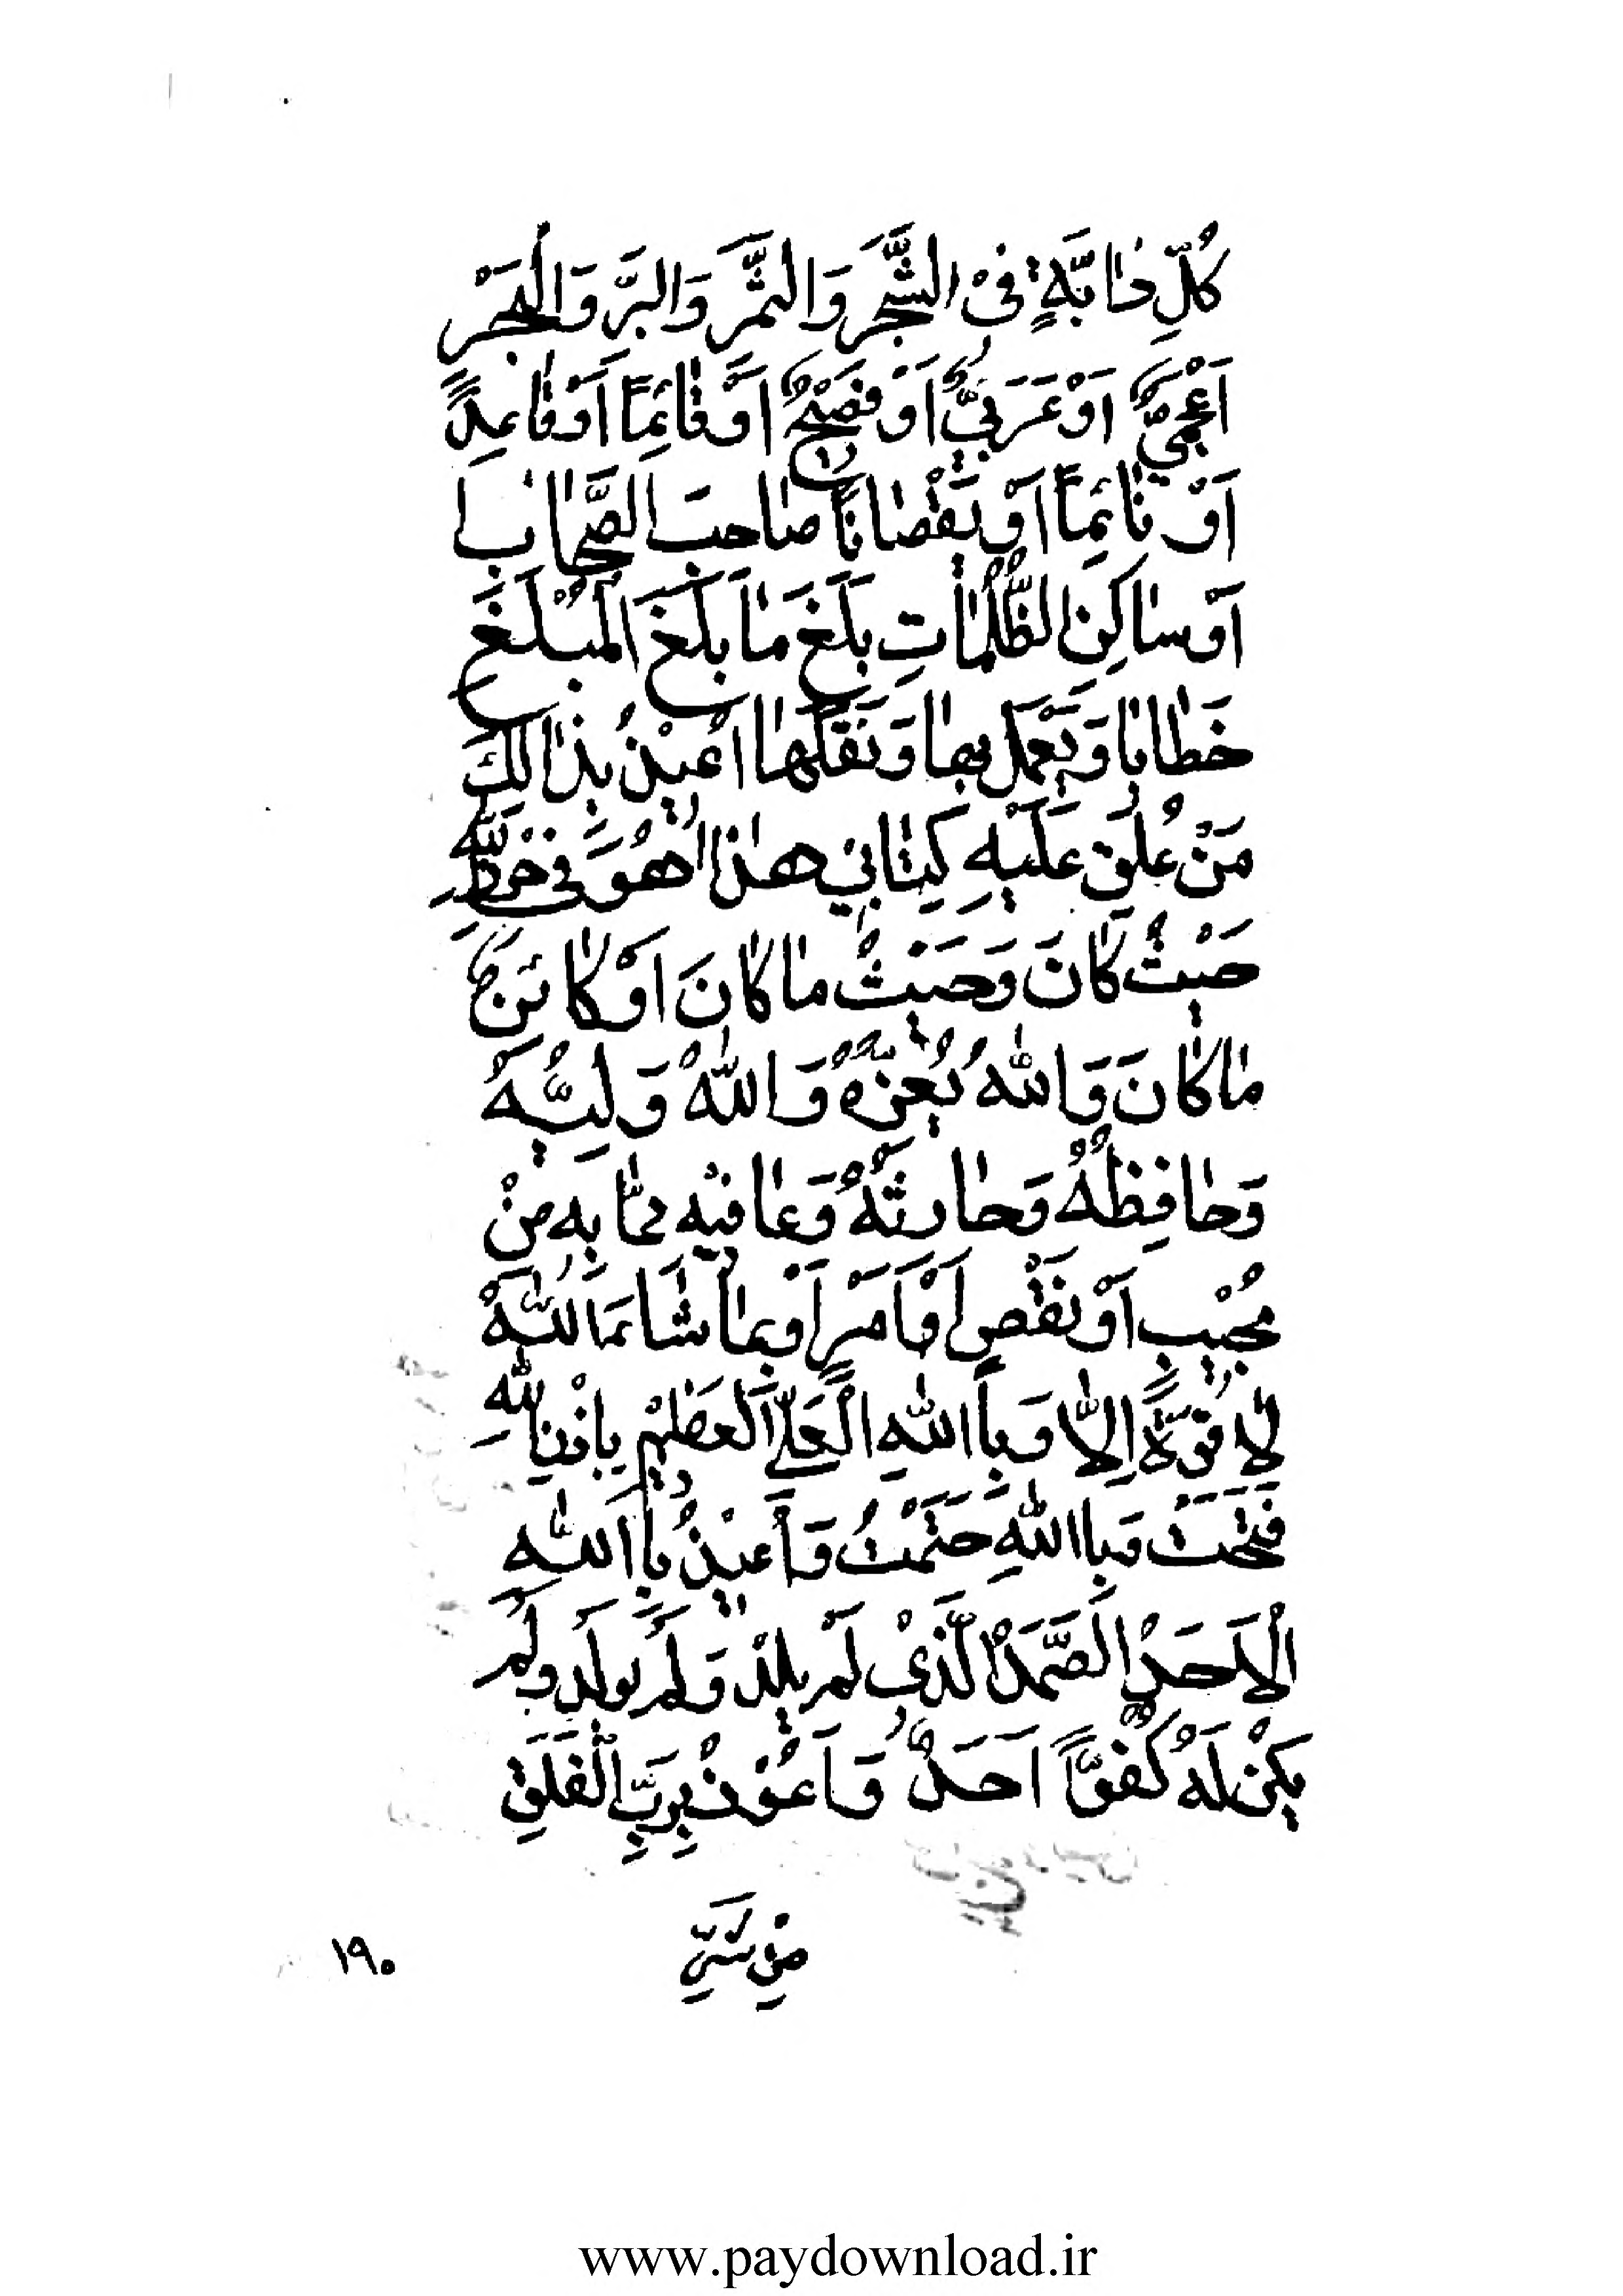 كُلِّ دٰابَّةٍ فِىْ الشَّجَرِ وَالثَّمَرِ وَالبَرِّ وَالْبَحْرِ
اَعْجَمِيٌّ اَوْ عَرَبِيٌّ اَوْ فَصِيْحٌ اَوْ قٰائِمًا اَوْ قٰاعِدً
اَوْ نٰائِمًا اَوْ يَقْضٰانًا صٰاحِبَ الصَّحٰابِ
اَوْ سٰاكِنِ الظُّلُمٰاتِ بَلَغَ مٰا بَلَغَ الْمُبْلَغَ
خَطٰايٰا وَ يَعْمَل بِهٰا وَ نَقَلَهٰا اُعِيْذُ بِذٰالِكَ
مَنْ عُلِّقَ عَلَيْهِ كِتٰابِي هٰذٰا هُوَ فِي حِرْزِاللّٰهِ
حَيْثُ كٰانَ وَ حَيْثُ مٰا كٰانَ اَوْ كٰائِنٌ
مٰا كٰانَ وَاللّٰهُ يُعِزُّهُ وَاللّٰهُ وَلِيُّهُ
وَ حٰافِظُهُ وَ حٰارِثُهُ وَ عٰافِيْهِ مِمّٰا بِهِ مِنْ
مُجِيْبٍ اَوْ نَقْصٍ اَوْ اَمَرٍ اَوْ بِمٰا شٰا ءَ اللّٰهُ
لٰا قُوَّةً اِلاّٰ وَ بِاَ اللّٰهِ الْعَلِيِّ الْعَظِيْمِ بِاِذْنِ اللّٰهِ
فَتَحَتْ وَ بِا اللّٰهِ حَتَمْتُ وَ اُعِيْذُ بِا اللّٰهِ
الْاَحَدْ الصَّمَدْ الَّذِىْ لَمْ يَلِدْ وَ لَمْ يُولَدْ وَ لَمْ
يَكُنْ لَهُ كُفُوًّا اَحَدٌ وَ اَعُوْذُ بِرَبِّ الْفَلَقِ
مِنْ شَرِّ
١٩٠
www.paydownload.ir